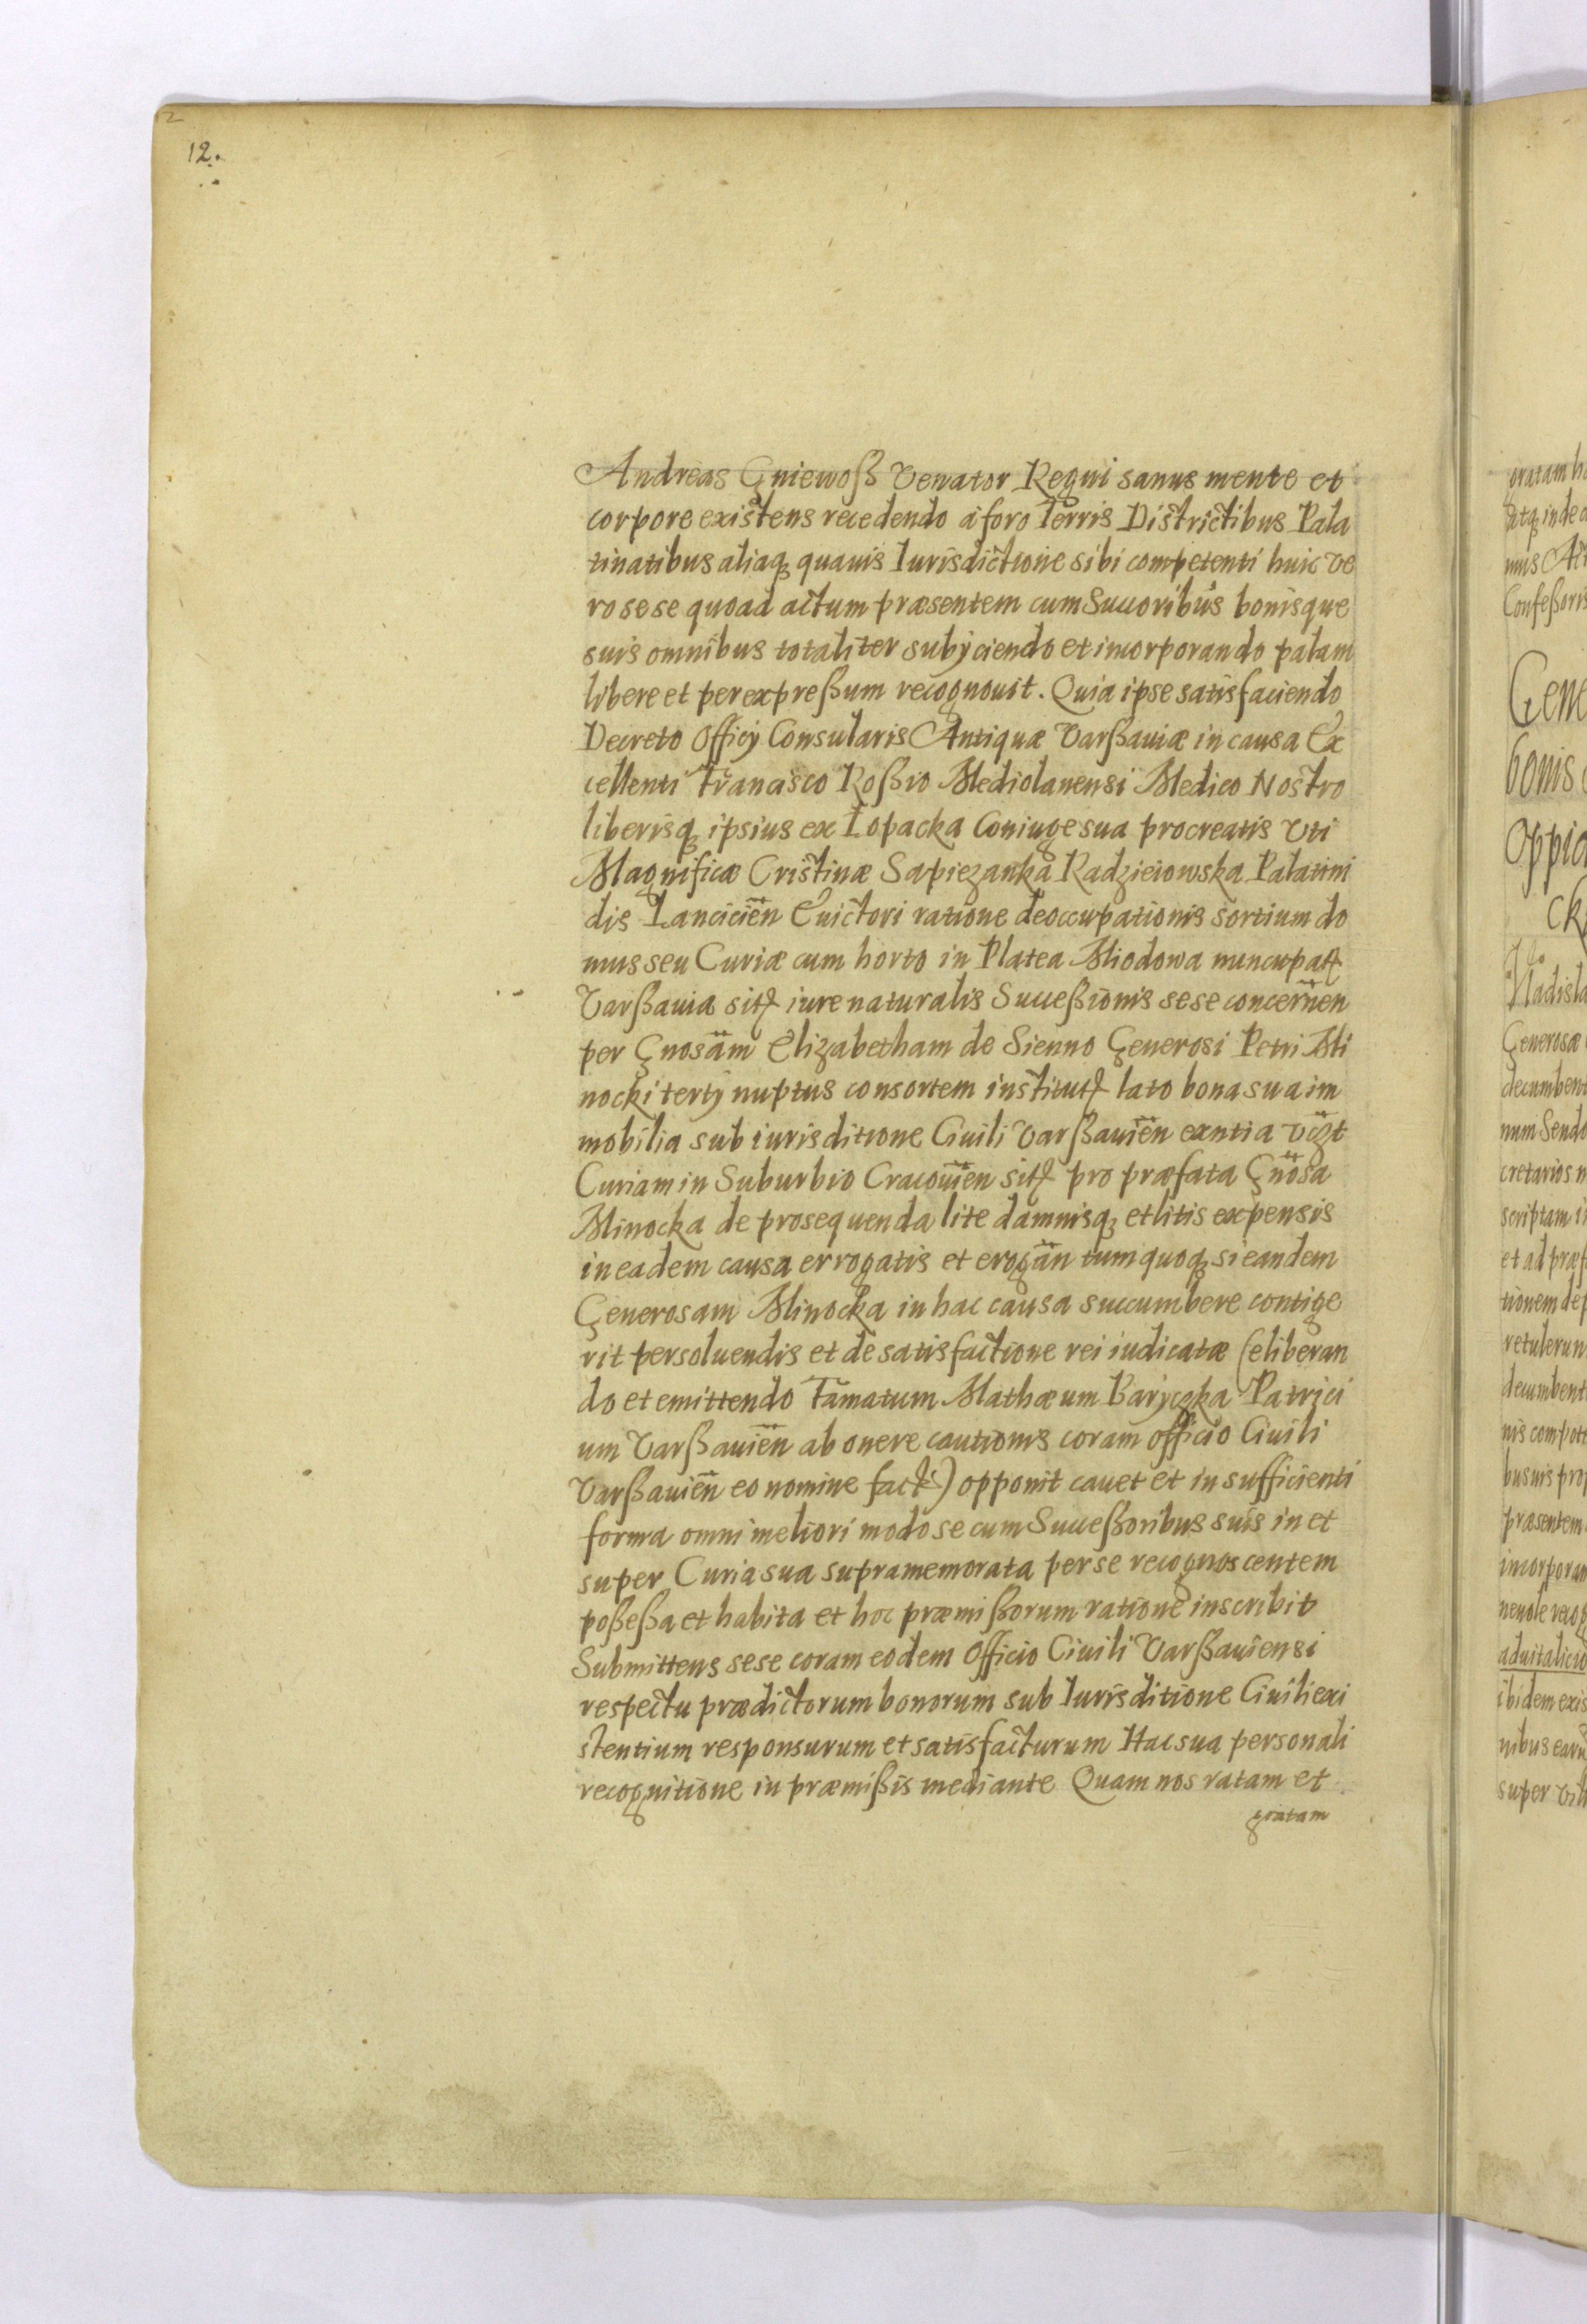 2
12.
Andreas Gniewoß Venator Regni sanus mente et
corpore existens recedendo à foro Terris Districtibus Pala
tinatibus aliaq quauis Iurisdictione sibi competenti huic ve
ro sese quoad actum præsentem cum Succoribus bonisque
suis omnibus totaliter subÿciendo et incorporando palam
libere et per expreßum recognouit. Quia ipse satisfaciendo
Decreto Officÿ Consularis Antiquæ Varßauiæ in causa Ex
cellenti Francisco Roßio Mediolanensi Medico Nostro
liberisq ipsius ex Lopacka Coniuge sua procreatis Vti
Magnificæ Cristinæ Sapiezanka Radzieiowska Palatini
dis Lancicien Euictori ratione deoccupationis sortium do
mus seu Curiæ cum horto in Platea Miodowa nuncupat
Varßauia sit iure naturalis Succeßionis sese concernen
per Gnosam Elizabetham de Sienno Generosi Petri Mi
nocki tertÿ nuptus consortem institut lato bona sua im
mobilia sub iurisditione Ciuili Varßauien exntia vizt
Curiam in Suburbio Cracouien sit pro præfata Gnosa
Minocka de prosequenda lite damnisq et litis expensis
in eadem causa errogatis et erogan tum quoq si eandem
Generosam Minocka in hac causa succumbere contige
rit persoluendis et de satisfactione rei iudicatæ (eliberan
do et emittendo Famatum Mathæum Baryczka Patrici
um Varßauien ab onere cautionis coram officio Ciuili
Varßauien eo nomine fact) opponit cauet et in sufficienti
forma omni meliori modo se cum Succeßoribus suis in et
super Curia sua supramemorata per se recognoscentem
poßeßa et habita et hoc præmißorum ratione inscribit
Submittens sese coram eodem Officio Ciuili Varßauiensi
respectu prædictorum bonorum sub Iurisditione Ciuili exi
stentium responsurum et satisfacturum Hac sua personali
recognitione in præmißis mediante Quam nos ratam et
gratam
gratam
atq inde
Confeßoris
Gene
bonis
Oppid
Generosæ
decumbent
num Sendo
cretarios
scriptam
et ad præf
tionem de
retulerun
decumbent
nis compot
præsentem
incorporan
aduitalicio
ibidem exis
super